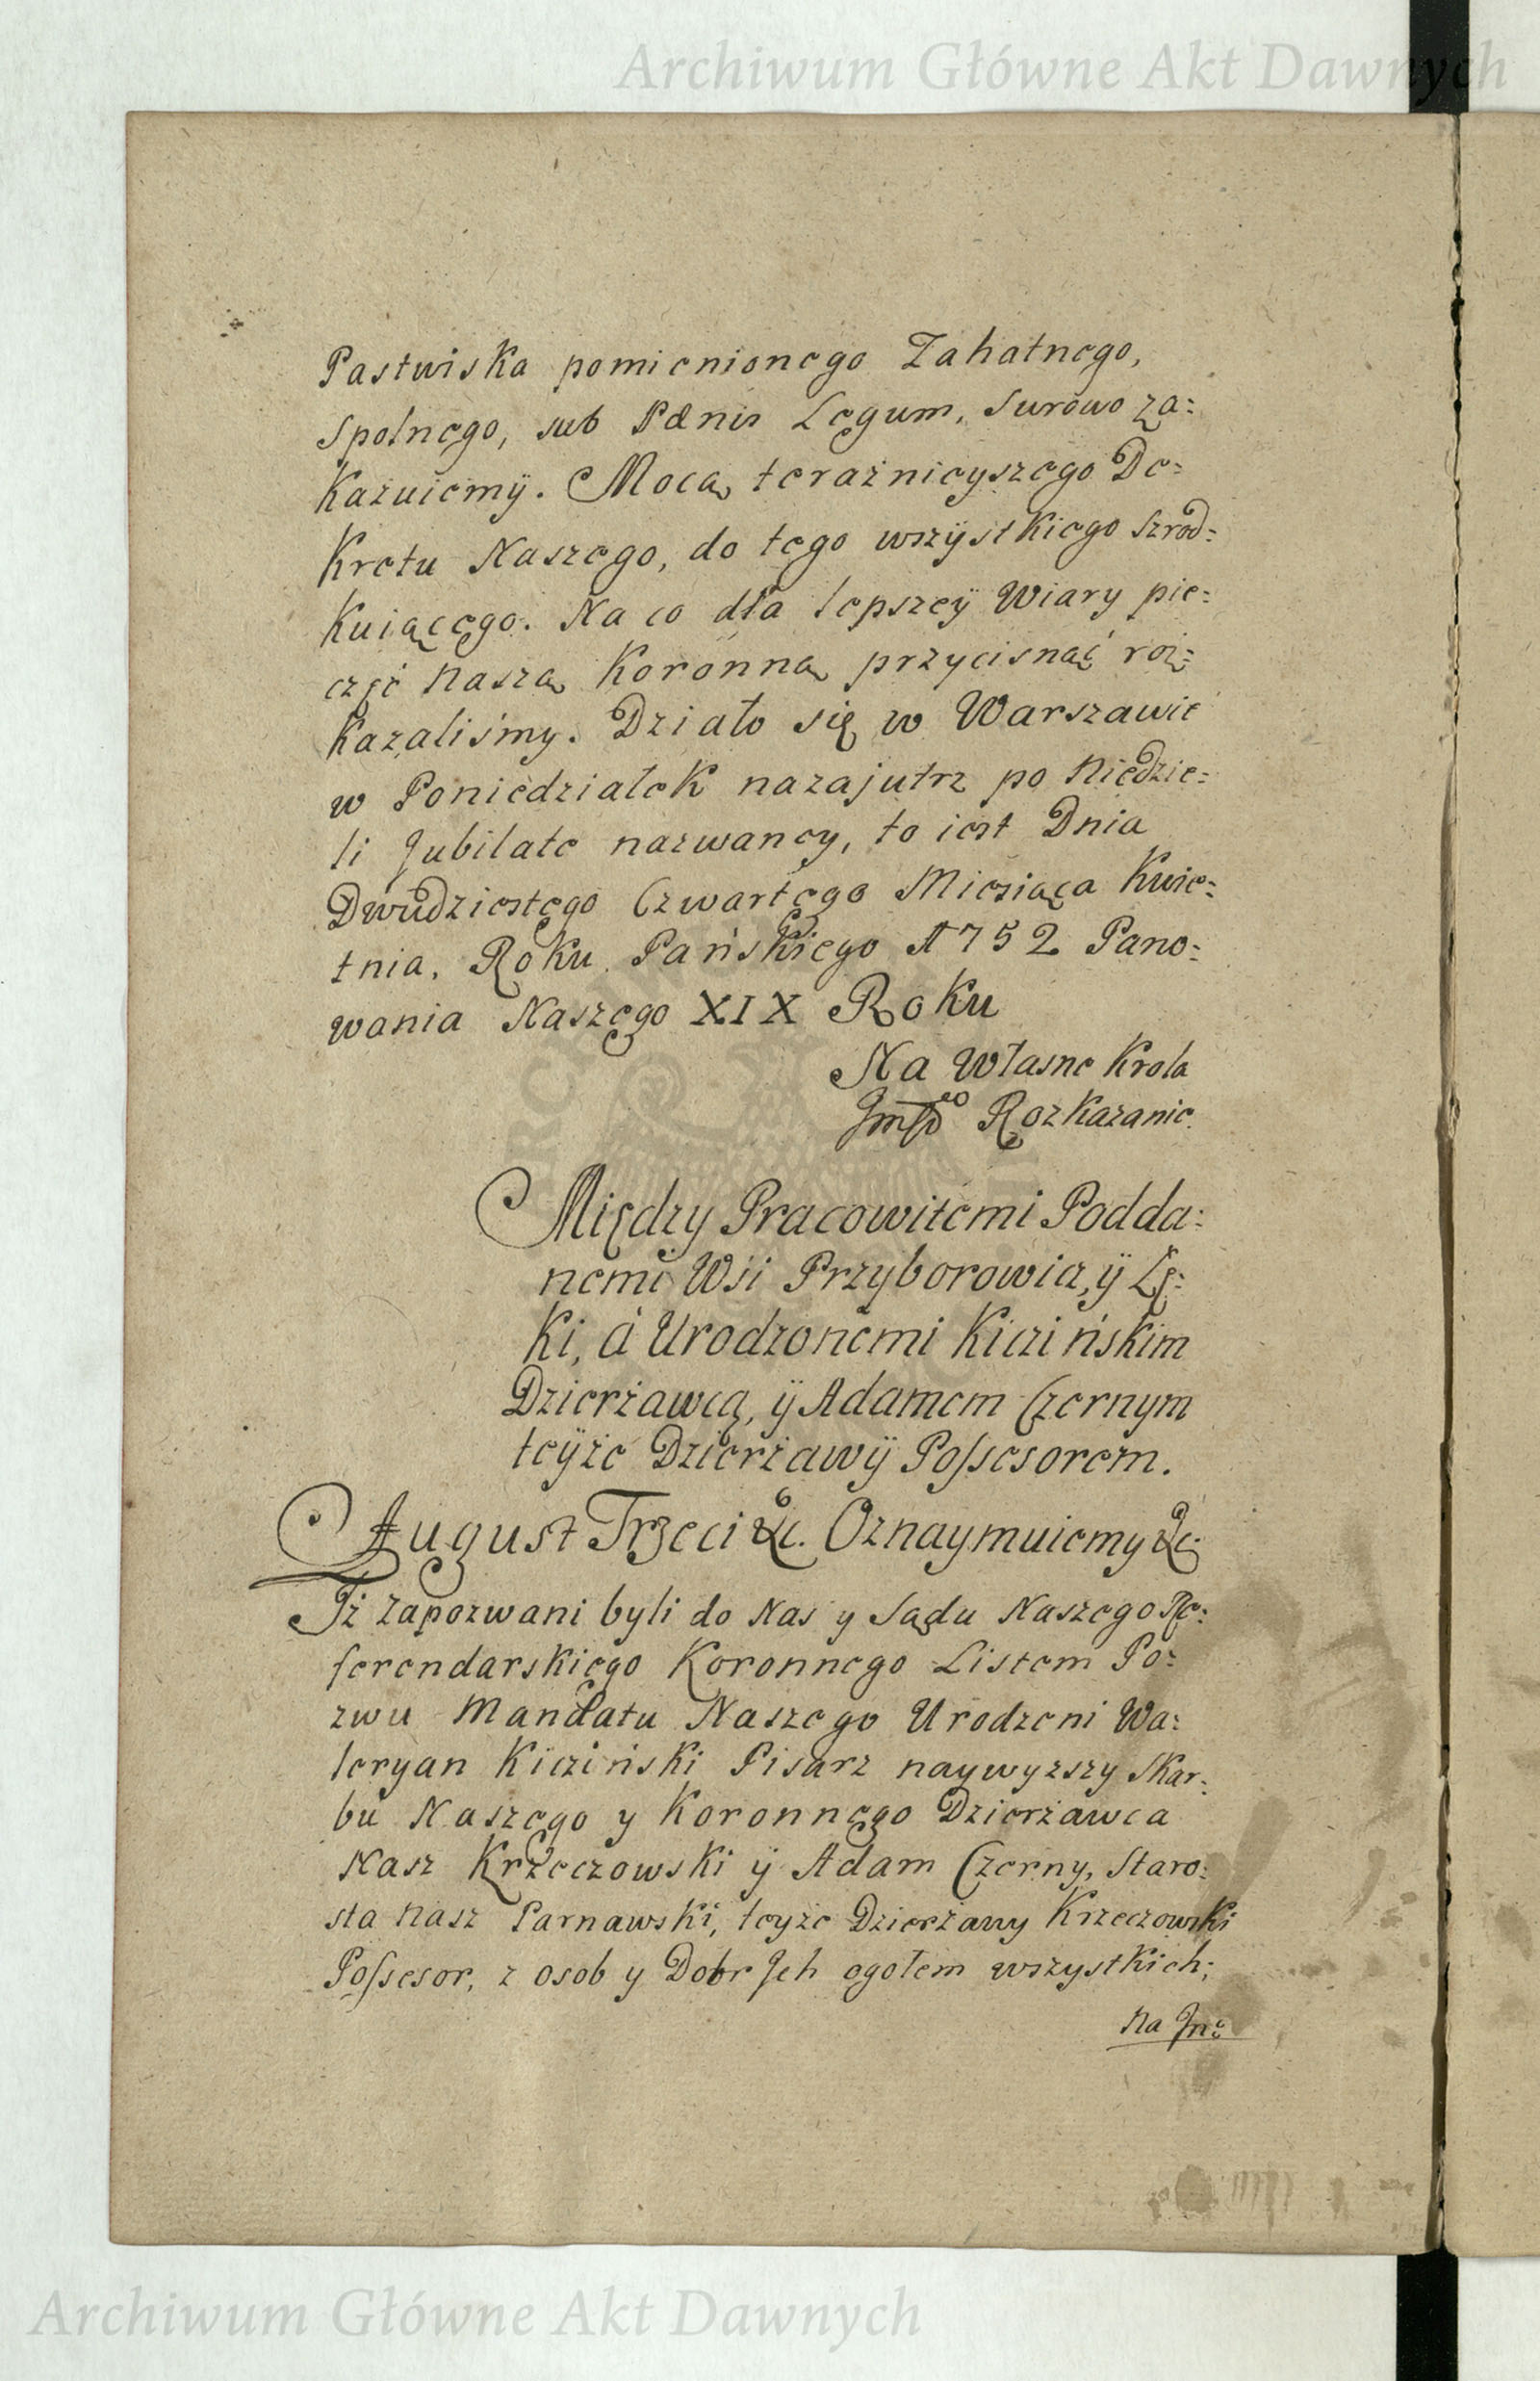 Archiwum Główne Akt Dawnych
Pastwiska pomienionego Zahatnego,
Spolnego, sub Pænis Legum, Surowo za=
kazuiemÿ. Mocą teraznieyszego De=
kretu Naszego, do tego wszÿstkiego szrod=
kuiącego. Na co dla lepszeÿ Wiary pie=
częć Naszą Koronną przycisnąć roz=
kazaliśmy. Działo się w Warszawie
w Poniedziałek nazajutrz po Niedzie=
li Jubilate nazwaney, to iest Dnia
Dwudziestego Czwartego Miesiąca Kwie=
tnia, Roku Pańskiego 1752 Pano=
wania Naszego XIX Roku
Na Własne Krola
Jmsci Rozkazanie.
Między Pracowitemi Podda=
nemi Wsi Przyborowia, ÿ Łę=
ki, á Urodzonemi Kiczińskim
Dzierżawcą, ÿ Adamem Czernym
teÿże Dzierżawÿ Possesorem.
August Trzeci &c. Oznaymuiemy &c.
Iż Zapozwani byli do Nas y Sądu Naszego Re=
ferendarskiego Koronnego Listem Po=
zwu Mandatu Naszego Urodzeni Wa=
leryan Kicziński Pisarz naywyzszy Skar=
bu Naszego y Koronnego Dzierżawca
Nasz Krzeczowski ÿ Adam Czerny, Staro=
sta Nasz Parnawski, teyże Dzierżawy Krzeczowski
Possesor, z osob y Dobr Jch ogołem wszystkich;
Na Jn=
Archiwum Główne Akt Dawnych